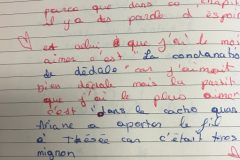 parce que dans ce chapit
il y a des parole d'espoir
est celui que j'ai le moi
aimer c'est "la condanation
de dédale" car j'aimait
bien dédale mais la partit
que j'ai le plus aimer
c'est "dans le cachot quan
Ariane a aporter le fil
à Thésée car c'était tres
mignon